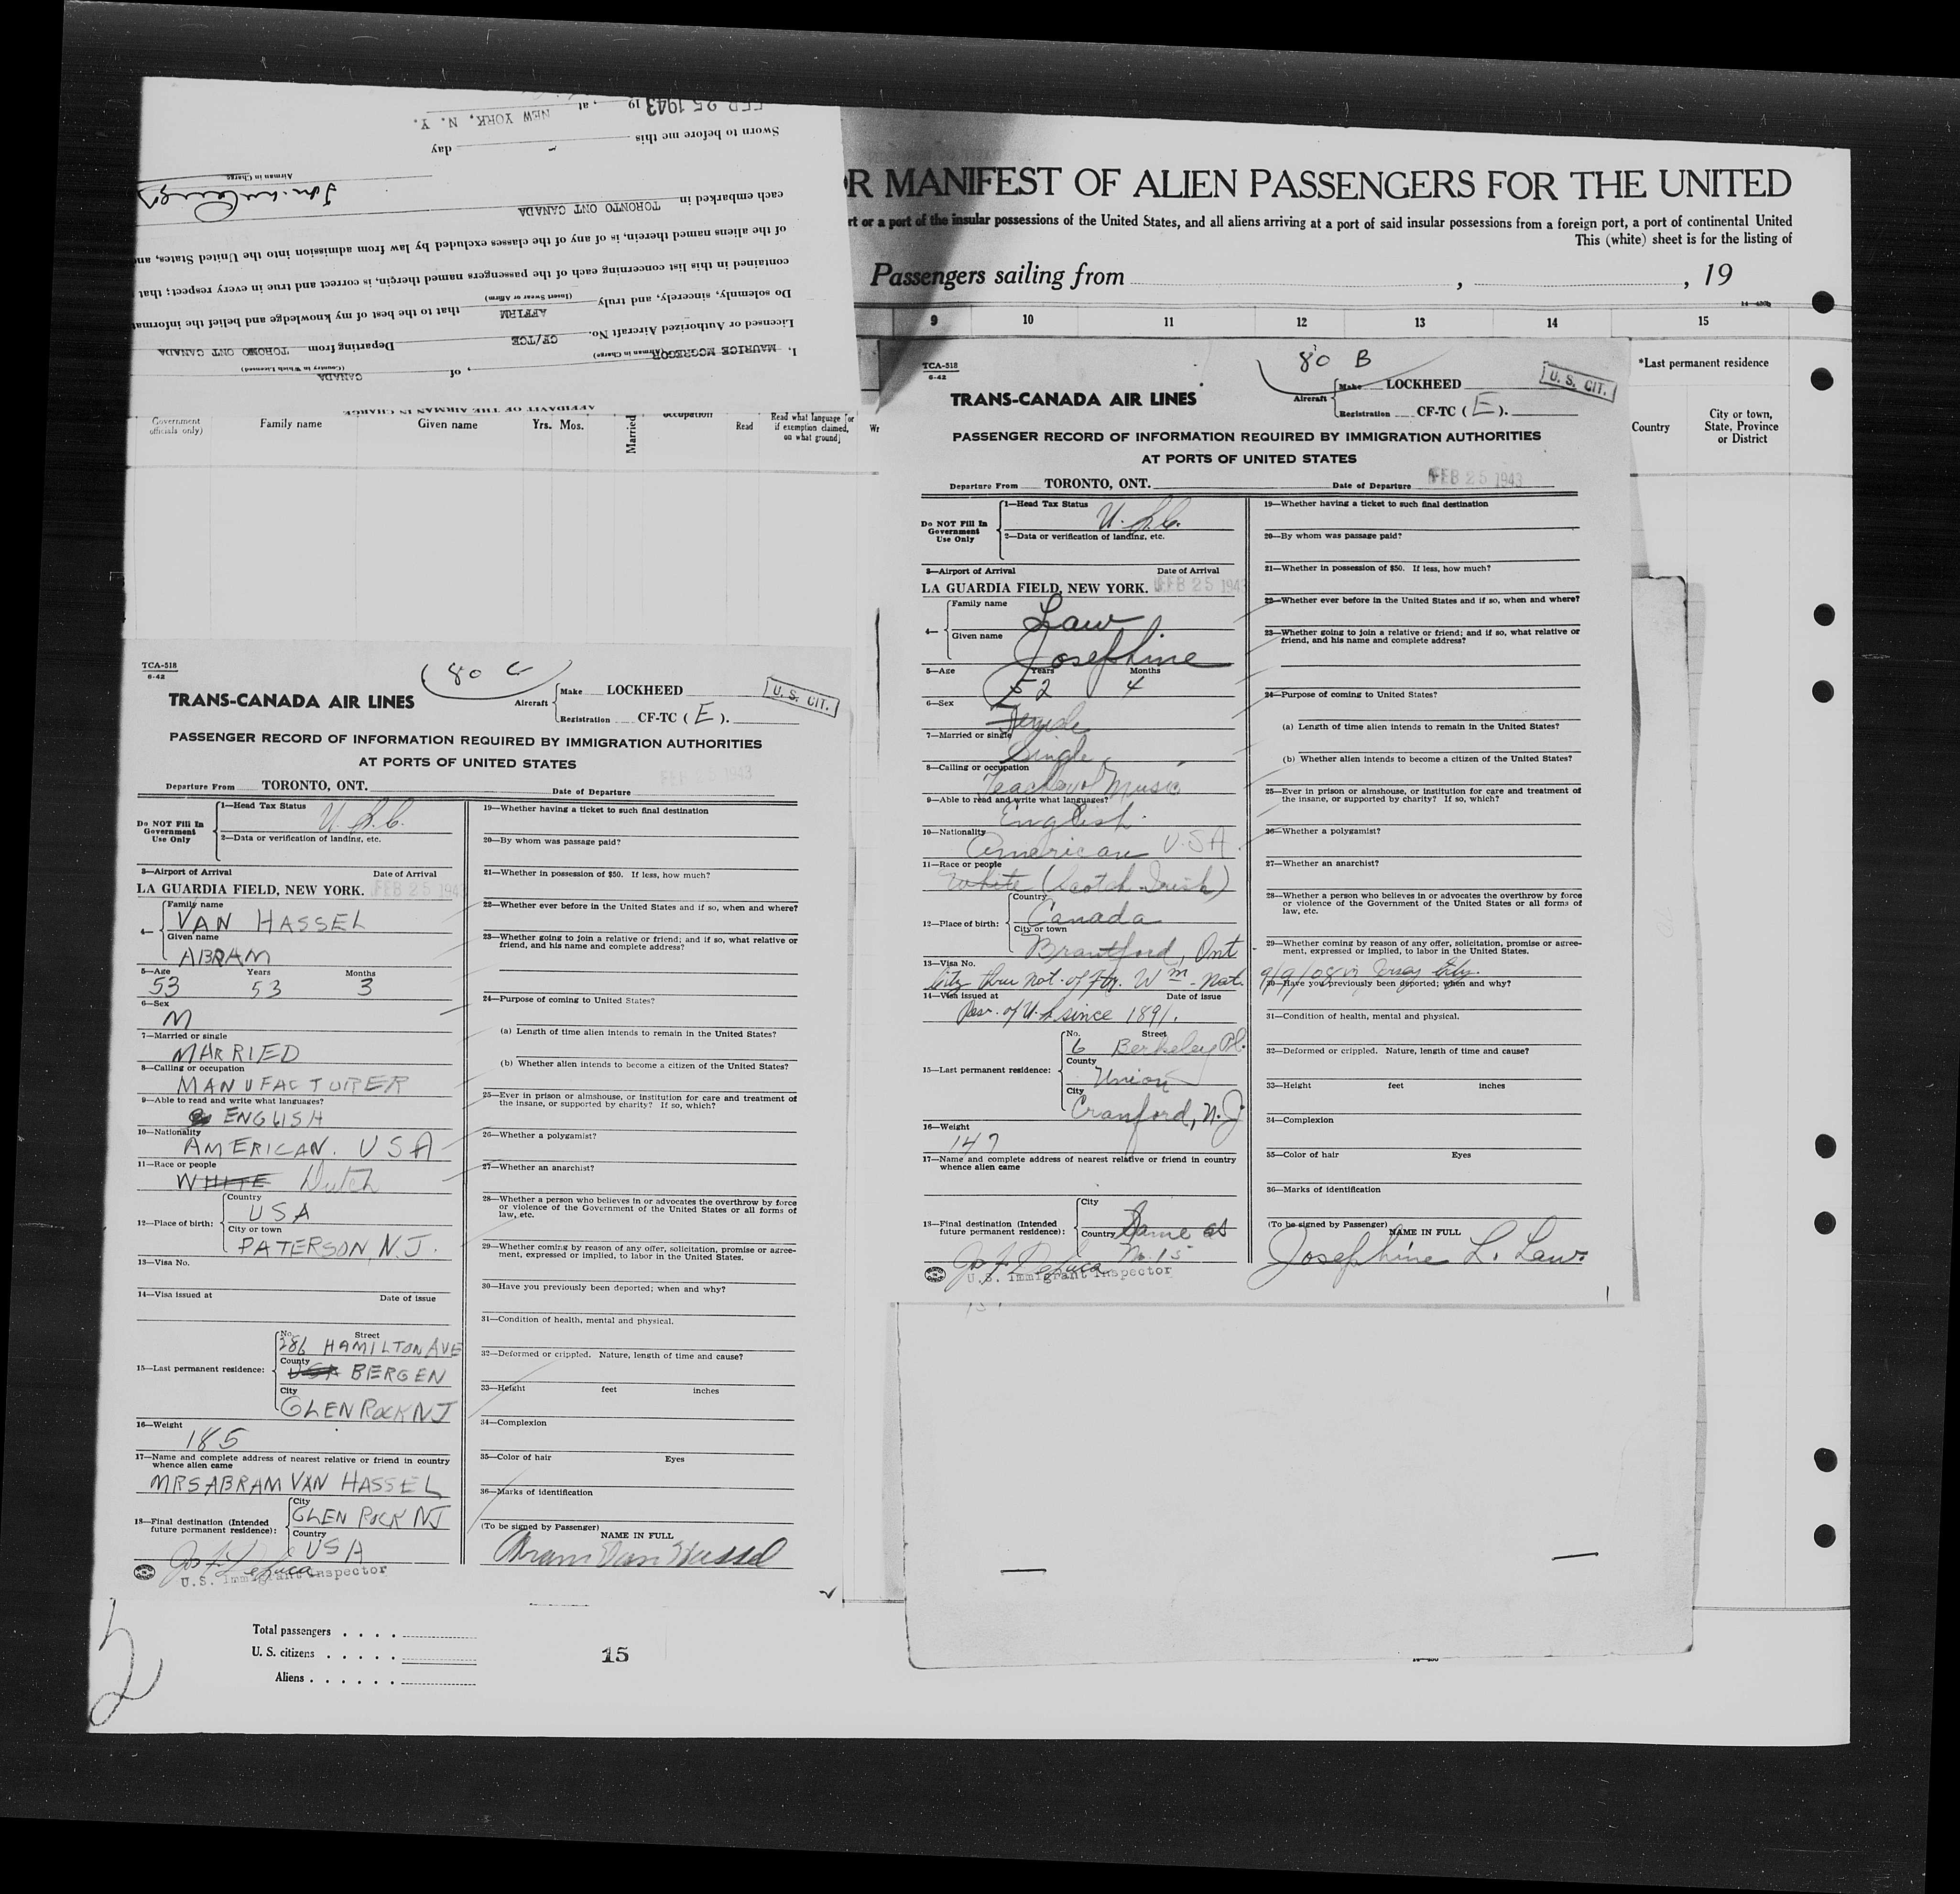 FEB 25 1943 19 , at NEW YORK, N. Y.
Sworn to before me this day
Airman in Charge
each embarked in TORONTO ONT CANADA
of the aliens named therein, is of any of the classes excluded by law from admission into the United States, an
contained in this list concerning each of the passengers named therein, is correct and true in every respect; that
(Insert Swear or Affirm)
Do solemnly, sincerely, and truly AFFIRM that to the best of my knowledge and belief the informat
Licensed or Authorized Aircraft No. CF/TCE Departing from TORONTO ONT CANADA
(Airman in Charge) (Country in Which Licensed)
I, MAURICE MCGREGOR, of CANADA
AFFIDAVIT OF THE AIRMAN IN CHARGE
Government
officials only)
Family name
Given name
Yrs. Mos.
Married
occupation
Read
Read what language [or
if exemption claimed,
on what ground]
Wr
R MANIFEST OF ALIEN PASSENGERS FOR THE UNITED
rt or a port of the insular possessions of the United States, and all aliens arriving at a port of said insular possessions from a foreign port, a port of continental United
This (white) sheet is for the listing of
Passengers sailing from , , 19
9 10 11 12 13 14 15
*Last permanent residence
Country
City or town,
State, Province
or District
TCA-518
6-42
80 C
TRANS-CANADA AIR LINES
Aircraft
Make LOCKHEED
Registration CF-TC ( E ).
U. S. CIT.
PASSENGER RECORD OF INFORMATION REQUIRED BY IMMIGRATION AUTHORITIES
AT PORTS OF UNITED STATES
Departure From TORONTO, ONT. Date of Departure FEB 25 1943
Do NOT Fill In
Government
Use Only
1—Head Tax Status U.S.C.
2—Data or verification of landing, etc.
3—Airport of Arrival Date of Arrival
LA GUARDIA FIELD, NEW YORK. FEB 25 194
4—
Family name
VAN HASSEL
Given name
ABRAM
5—Age Years Months
53 53 3
6—Sex
M
7—Married or single
MARRIED
8—Calling or occupation
MANUFACTURER
9—Able to read and write what languages?
ENGLISH
10—Nationality
AMERICAN. USA
11—Race or people
WHITE Dutch
12—Place of birth:
Country
USA
City or town
PATERSON, N.J.
13—Visa No.
14—Visa issued at Date of issue
15—Last permanent residence:
No. Street
286 HAMILTON AVE
County
USA BERGEN
City
GLEN ROCK NJ
16—Weight
185
17—Name and complete address of nearest relative or friend in country
whence alien came
MRS ABRAM VAN HASSEL
18—Final destination (Intended
future permanent residence):
City
GLEN ROCK NJ
Country
USA
U.S. Immigrant Inspector
19—Whether having a ticket to such final destination
20—By whom was passage paid?
21—Whether in possession of $50. If less, how much?
22—Whether ever before in the United States and if so, when and where?
23—Whether going to join a relative or friend; and if so, what relative or
friend, and his name and complete address?
24—Purpose of coming to United States?
(a) Length of time alien intends to remain in the United States?
(b) Whether alien intends to become a citizen of the United States?
25—Ever in prison or almshouse, or institution for care and treatment of
the insane, or supported by charity? If so, which?
26—Whether a polygamist?
27—Whether an anarchist?
28—Whether a person who believes in or advocates the overthrow by force
or violence of the Government of the United States or all forms of
law, etc.
29—Whether coming by reason of any offer, solicitation, promise or agree-
ment, expressed or implied, to labor in the United States.
30—Have you previously been deported; when and why?
31—Condition of health, mental and physical.
32—Deformed or crippled. Nature, length of time and cause?
33—Height feet inches
34—Complexion
35—Color of hair Eyes
36—Marks of identification
(To be signed by Passenger)
NAME IN FULL
Abram Van Hassel
Total passengers
U. S. citizens
Aliens
15
TCA-518
6-42
80 B
TRANS-CANADA AIR LINES
Aircraft
Make LOCKHEED
Registration CF-TC ( E ).
U. S. CIT.
PASSENGER RECORD OF INFORMATION REQUIRED BY IMMIGRATION AUTHORITIES
AT PORTS OF UNITED STATES
Departure From TORONTO, ONT. Date of Departure FEB 25 1943
Do NOT Fill In
Government
Use Only
1—Head Tax Status U.S.C.
2—Data or verification of landing, etc.
3—Airport of Arrival Date of Arrival
LA GUARDIA FIELD, NEW YORK. FEB 25 1943
4—
Family name
Law
Given name
Josephine
5—Age Years Months
52 4
6—Sex
Female
7—Married or single
Single
8—Calling or occupation
Teacher of Music
9—Able to read and write what languages?
English.
10—Nationality
American U.S.A.
11—Race or people
White (Scotch-Irish)
12—Place of birth:
Country
Canada
City or town
Brantford, Ont
13—Visa No.
thru Nat. of Wm. Nat. 9/9/08 in Jersey City.
14—Visa issued at Date of issue
Res. of U.S. since 1891.
15—Last permanent residence:
No. Street
6 Berkeley Pl.
County
Union
City
Cranford, N.J.
16—Weight
147
17—Name and complete address of nearest relative or friend in country
whence alien came
18—Final destination (Intended
future permanent residence):
City
Country
Same as
No. 15
U.S. Immigrant Inspector
19—Whether having a ticket to such final destination
20—By whom was passage paid?
21—Whether in possession of $50. If less, how much?
22—Whether ever before in the United States and if so, when and where?
23—Whether going to join a relative or friend; and if so, what relative or
friend, and his name and complete address?
24—Purpose of coming to United States?
(a) Length of time alien intends to remain in the United States?
(b) Whether alien intends to become a citizen of the United States?
25—Ever in prison or almshouse, or institution for care and treatment of
the insane, or supported by charity? If so, which?
26—Whether a polygamist?
27—Whether an anarchist?
28—Whether a person who believes in or advocates the overthrow by force
or violence of the Government of the United States or all forms of
law, etc.
29—Whether coming by reason of any offer, solicitation, promise or agree-
ment, expressed or implied, to labor in the United States.
30—Have you previously been deported; when and why?
31—Condition of health, mental and physical.
32—Deformed or crippled. Nature, length of time and cause?
33—Height feet inches
34—Complexion
35—Color of hair Eyes
36—Marks of identification
(To be signed by Passenger)
NAME IN FULL
Josephine L. Law.